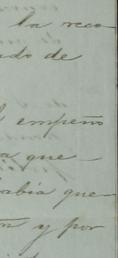 la reco-
ado de
empeño
a que
abia que-
ón y por